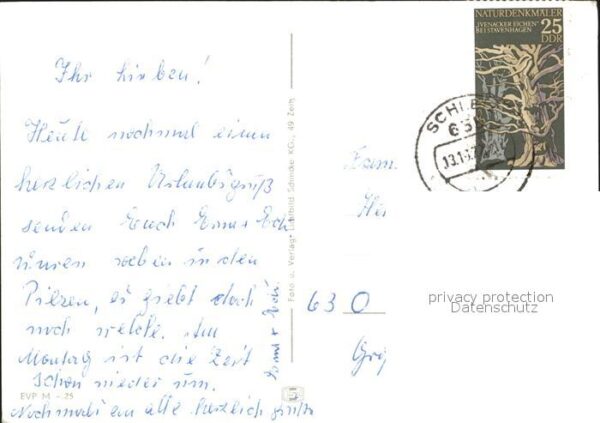 Ihr Lieben!
Heute nochmal einen
herzlichen Urlaubsgruß
senden Euch Erna + Eck
waren neben in den
Pilzen, es giebt doch
noch welche. Am
Montag ist die Zeit
schon wieder um.
Nochmals an alle herzlich grüßen
Erna + Eck.
EVP M -.25
Foto u. Verlag: Lichtbild Schincke KG., 49 Zeitz
NATURDENKMÄLER
"IVENACKER EICHEN" 25
BEI STAVENHAGEN DDR
SCHLE
13.1
Fam.
He
63 0
privacy protection
Datenschutz